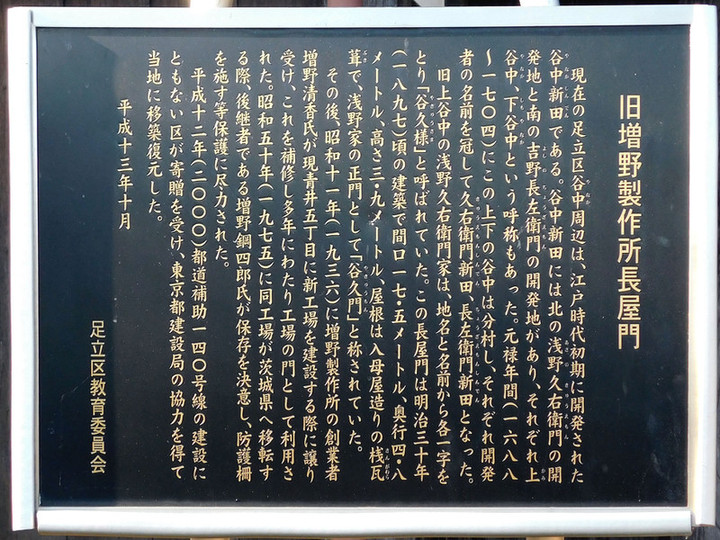 旧増野製作所長屋門
現在の足立区谷中周辺は、江戸時代初期に開発された
谷中新田である。谷中新田には北の浅野久右衛門の開
発地と南の吉野長左衛門の開発地があり、それぞれ上
谷中、下谷中という呼称もあった。元禄年間(一六八八
~一七〇四)にこの上下の谷中は分村し、それぞれ開発
者の名前を冠して久右衛門新田、長左衛門新田となった。
旧上谷中の浅野久右衛門家は、地名と名前から各一字を
とり「谷久様」と呼ばれていた。この長屋門は明治三十年
(一八九七)頃の建築で間口一七・五メートル、奥行四・八
メートル、高さ三・九メートル、屋根は入母屋造りの桟瓦
葺で、浅野家の正門として「谷久門」と称されていた。
その後、昭和十一年(一九三六)に増野製作所の創業者
増野清香氏が現青井五丁目に新工場を建設する際に譲り
受け、これを補修し多年にわたり工場の門として利用さ
れた。昭和五十年(一九七五)に同工場が茨城県へ移転す
る際、後継者である増野鋼四郎氏が保存を決意し、防護柵
を施す等保護に尽力された。
平成十二年(二〇〇〇)都道補助一四〇号線の建設に
ともない区が寄贈を受け、東京都建設局の協力を得て
当地に移築復元した。
平成十三年十月
足立区教育委員会